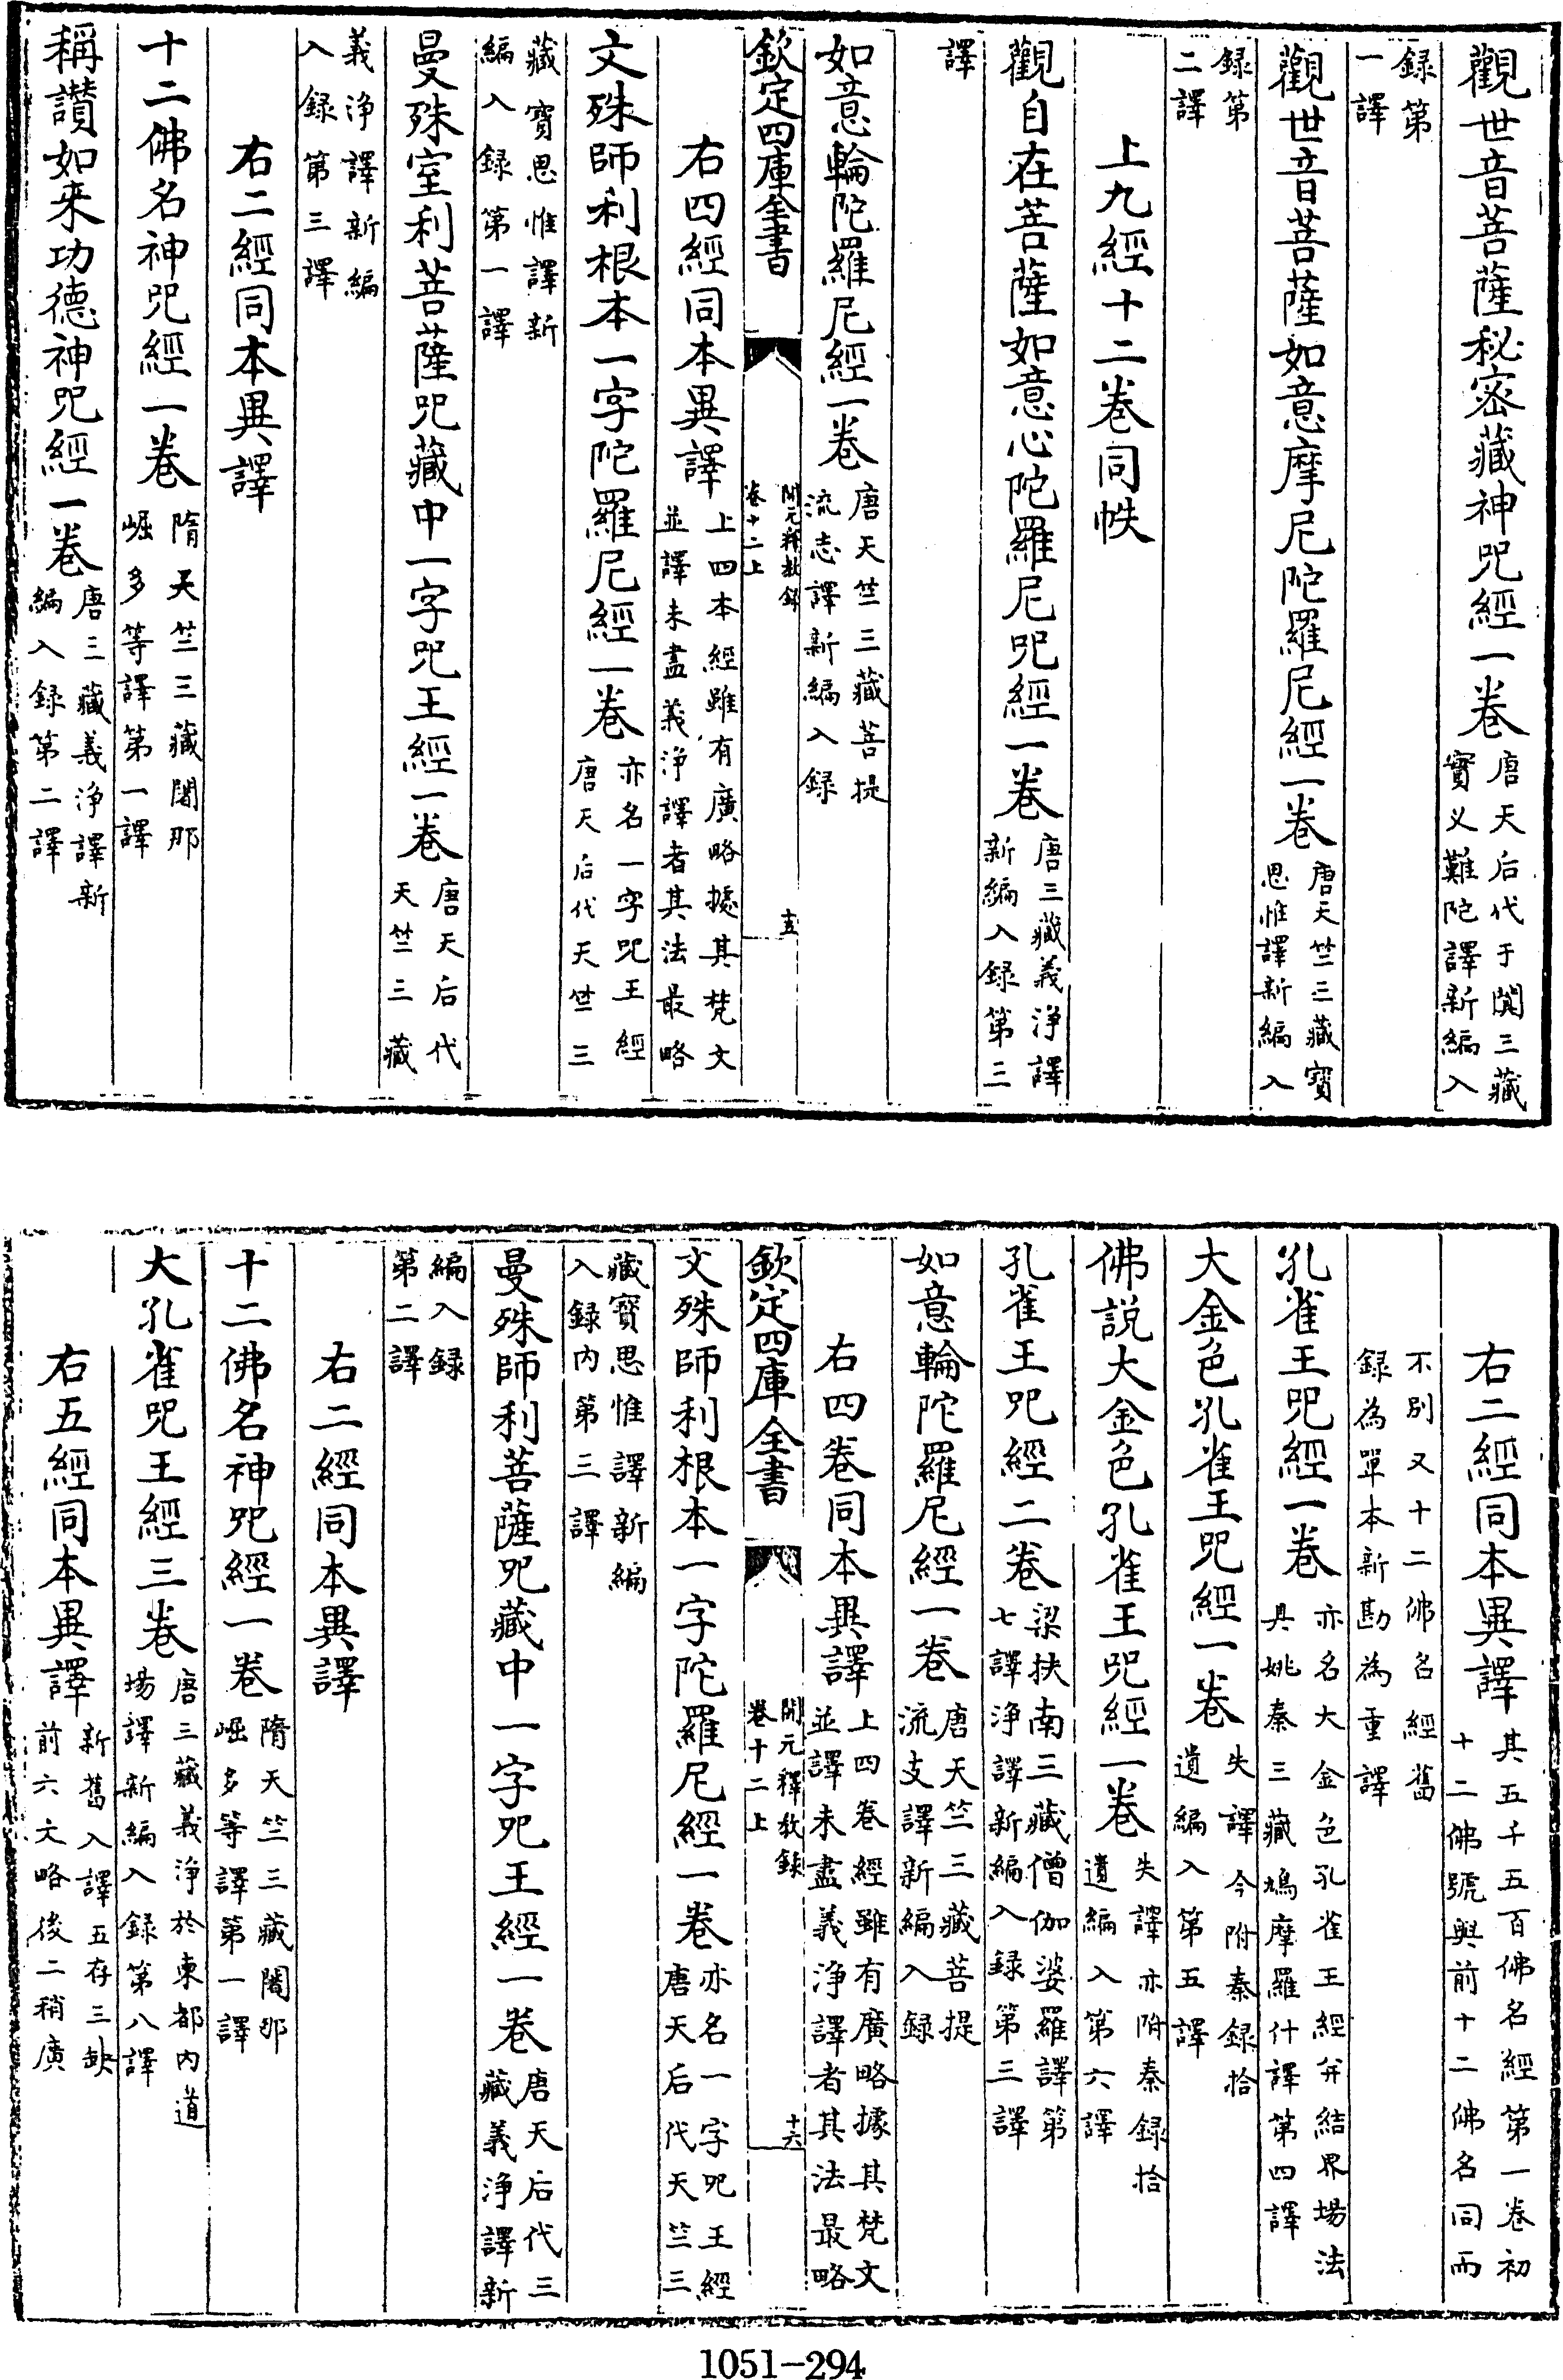 觀世音菩薩秘密藏神咒經一卷唐天后代于闐三藏實义難陀譯新編入
録第一譯
觀世音菩薩如意摩尼陀羅尼經一卷唐天竺三藏寳思惟譯新編入
録第二譯
上九經十二卷同帙
觀自在菩薩如意心陀羅尼咒經一卷唐三藏義浄譯新編入録第三
譯
如意輪陀羅尼經一卷唐天竺三藏菩提流志譯新編入録
欽定四庫全書 開元釋教録卷十二上 十五
右四經同本異譯上四本經雖有廣略據其梵文並譯未盡義浄譯者其法最略
文殊師利根本一字陀羅尼經一卷亦名一字咒王經唐天后代天竺三
藏寳思惟譯新編入録第一譯
曼殊室利菩薩咒藏中一字咒王經一卷唐天后代天竺三藏
義浄譯新編入録第三譯
右二經同本異譯
十二佛名神咒經一卷隋天竺三藏闍那崛多等譯第一譯
稱讃如来功德神咒經一卷唐三藏義浄譯新編入録第二譯
右二經同本異譯其五千五百佛名經第一卷初十二佛號與前十二佛名同而
不別又十二佛名經舊録為單本新勘為重譯
孔雀王咒經一卷亦名大金色孔雀王經并結界場法具姚秦三藏鳩摩羅什譯第四譯
大金色孔雀王咒經一卷失譯今附秦録拾遺編入第五譯
佛説大金色孔雀王咒經一卷失譯亦附秦録拾遺編入第六譯
孔雀王咒經二卷梁扶南三藏僧伽婆羅譯第七譯浄譯新編入録第三譯
如意輪陀羅尼經一卷唐天竺三藏菩提流支譯新編入録
右四卷同本異譯上四卷經雖有廣略據其梵文並譯未盡義浄譯者其法最略
欽定四庫全書 開元釋教録卷十二上 十六
文殊師利根本一字陀羅尼經一卷亦名一字咒王經唐天后代天竺三
藏寳思惟譯新編入録内第三譯
曼殊師利菩薩咒藏中一字咒王經一卷唐天后代三藏義浄譯新
編入録第二譯
右二經同本異譯
十二佛名神咒經一卷隋天竺三藏闍那崛多等譯第一譯
大孔雀咒王經三卷唐三藏義浄於東都内道場譯新編入録第八譯
右五經同本異譯新舊入譯五存三缺前六文略後二稍廣
1051-294